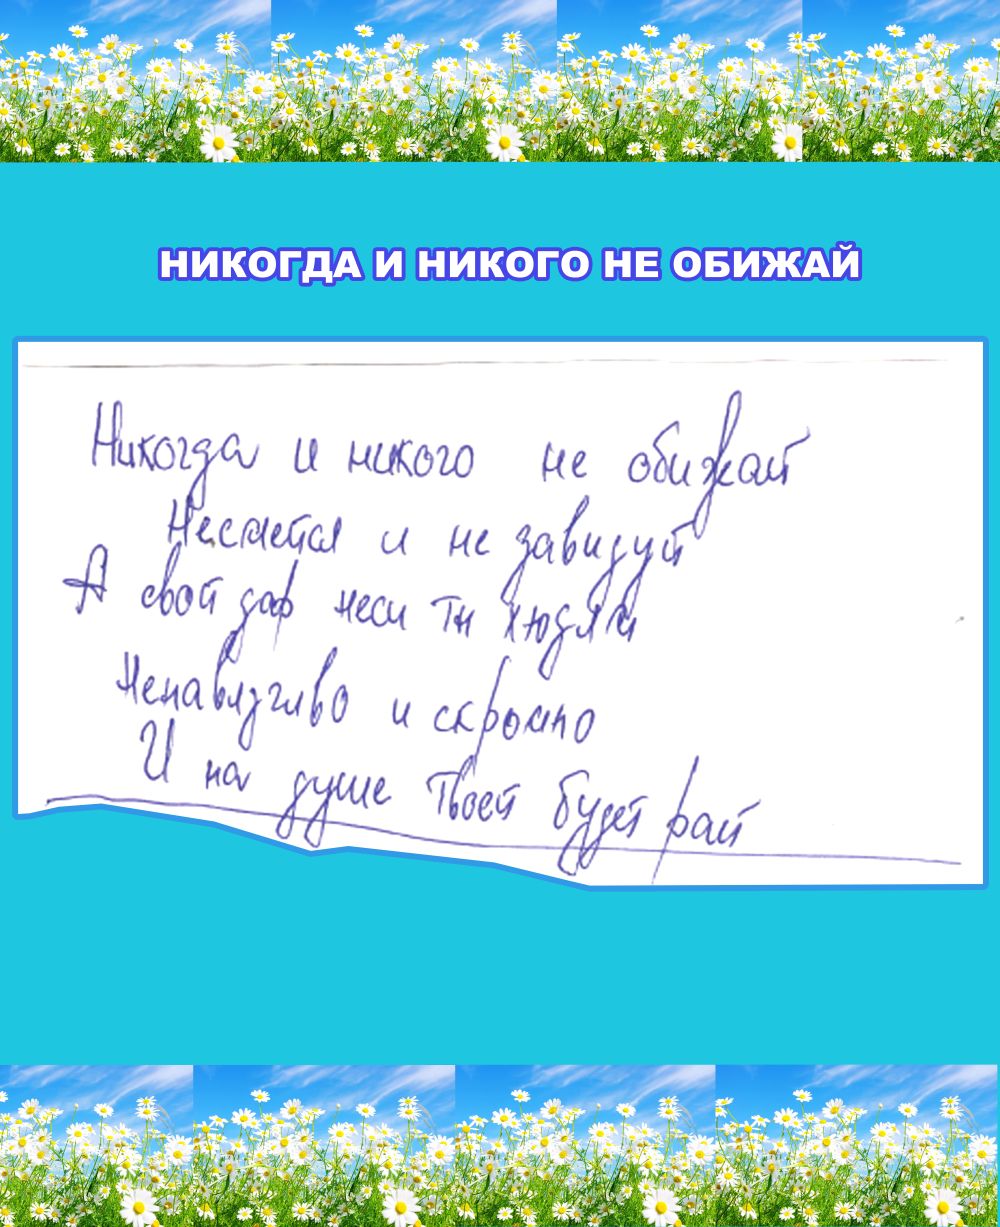 НИКОГДА И НИКОГО НЕ ОБИЖАЙ
Никогда и никого не обижай
и не завидуй
А свой дар неси ты людям
Ненавязчиво и скромно
И на душе твоей будет рай